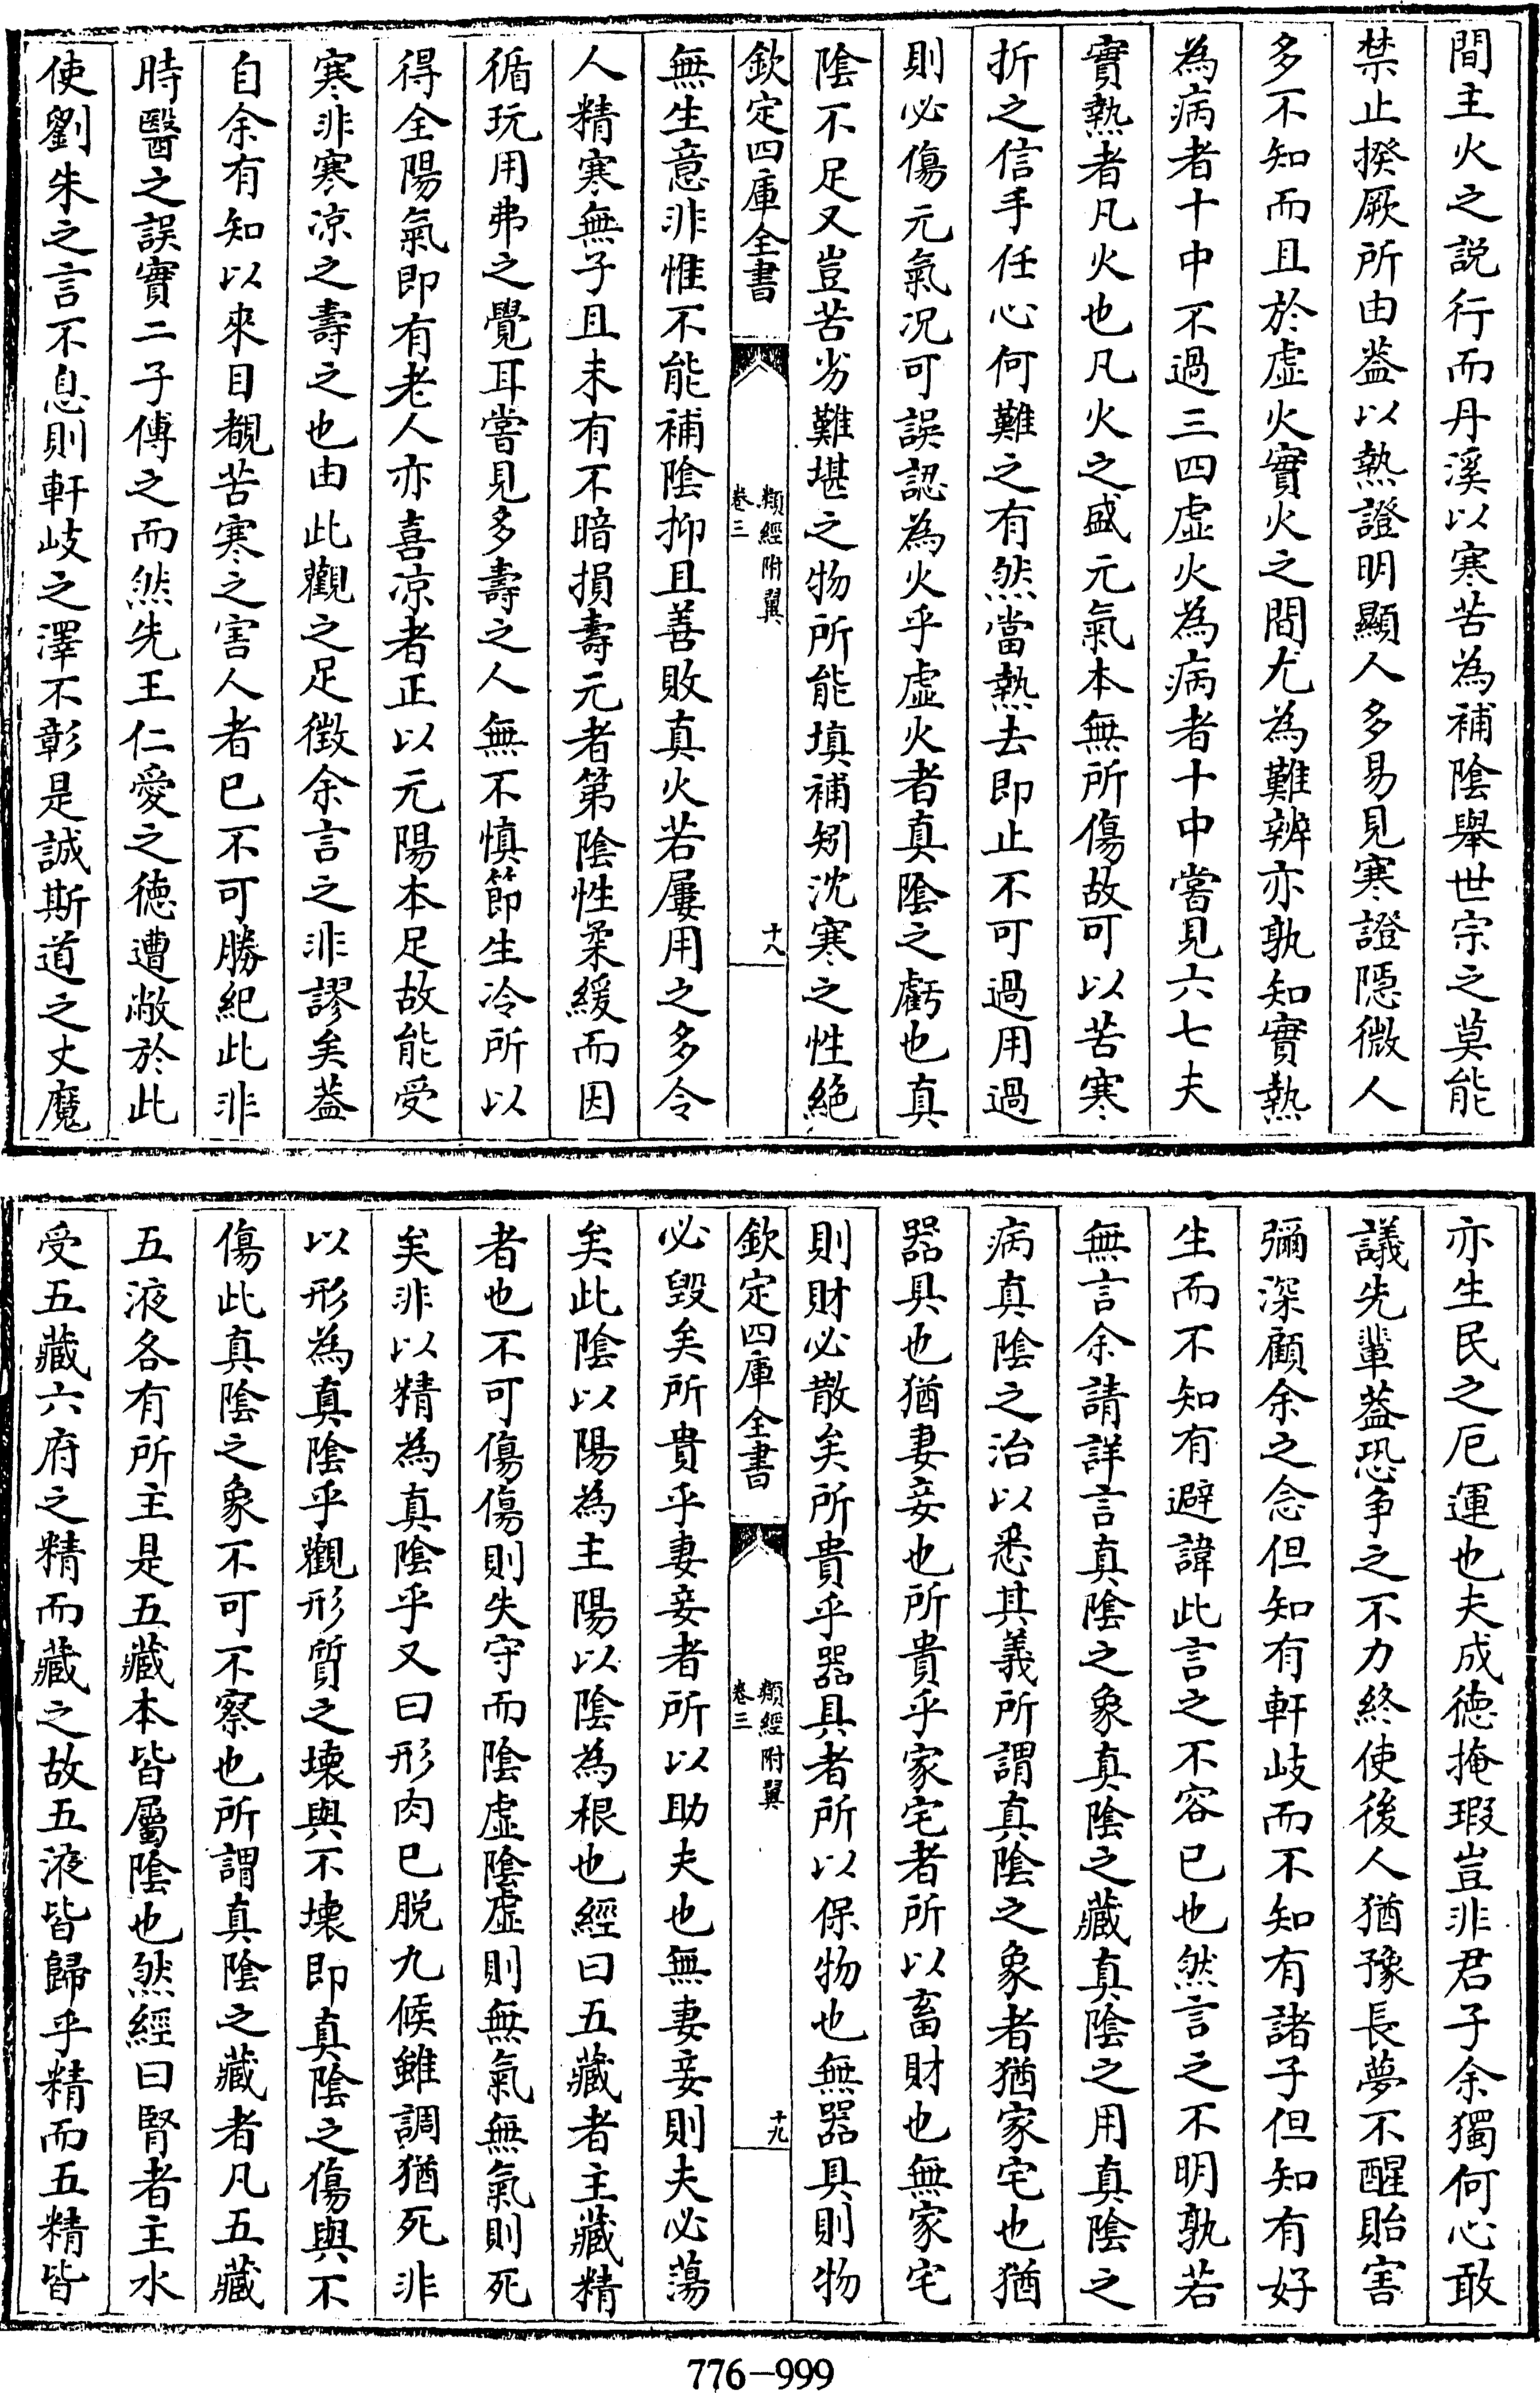 間主火之説行而丹溪以寒苦為補陰舉世宗之莫能
禁止揆厥所由葢以熱證明顯人多易見寒證隱微人
多不知而且於虚火實火之間尤為難辨亦孰知實熱
為病者十中不過三四虚火為病者十中嘗見六七夫
實熱者凡火也凡火之盛元氣本無所傷故可以苦寒
折之信手任心何難之有然當熱去即止不可過用過
則必傷元氣况可誤認為火乎虚火者真陰之虧也真
陰不足又豈苦劣難堪之物所能填補矧沈寒之性絶
欽定四庫全書
類經附翼
卷三
十八
無生意非惟不能補陰抑且善敗真火若屢用之多令
人精寒無子且未有不暗損壽元者第陰性柔緩而因
循玩用弗之覺耳嘗見多壽之人無不慎節生冷所以
得全陽氣即有老人亦喜凉者正以元陽本足故能受
寒非寒凉之壽之也由此觀之足徴余言之非謬矣葢
自余有知以來目覩苦寒之害人者已不可勝紀此非
時醫之誤實二子傅之而然先王仁愛之德遭敝於此
使劉朱之言不息則軒岐之澤不彰是誠斯道之丈魔
亦生民之厄運也夫成德掩瑕豈非君子余獨何心敢
議先輩葢恐争之不力終使後人猶豫長夢不醒貽害
彌深顧余之念但知有軒岐而不知有諸子但知有好
生而不知有避諱此言之不容已也然言之不明孰若
無言余請詳言真陰之象真陰之藏真陰之用真陰之
病真陰之治以悉其義所謂真陰之象者猶家宅也猶
器具也猶妻妾也所貴乎家宅者所以畜財也無家宅
則財必散矣所貴乎器具者所以保物也無器具則物
欽定四庫全書
類經附翼
卷三
十九
必毁矣所貴乎妻妾者所以助夫也無妻妾則夫必蕩
矣此陰以陽為主陽以陰為根也經曰五藏者主藏精
者也不可傷傷則失守而陰虚陰虚則無氣無氣則死
矣非以精為真陰乎又曰形肉已脱九候雖調猶死非
以形為真陰乎觀形質之壞與不壞即真陰之傷與不
傷此真陰之象不可不察也所謂真陰之藏者凡五藏
五液各有所主是五藏本皆屬陰也然經曰腎者主水
受五藏六府之精而藏之故五液皆歸乎精而五精皆
776-999